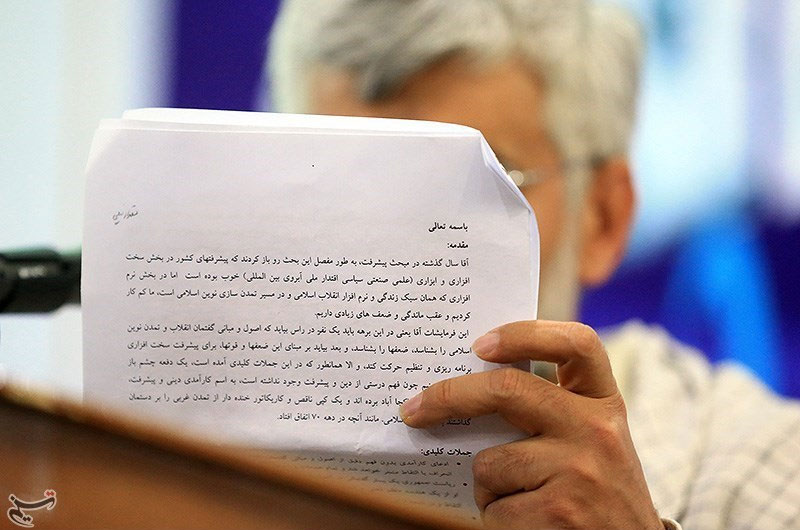 باسمه تعالی
مقدمه:
آقا سال گذشته در مبحث پیشرفت، به طور مفصل این بحث رو باز کردند که پیشرفتهای کشور در بخش سخت
افزاری و ابزاری (علمی صنعتی سیاسی اقتدار ملی آبروی بین المللی) خوب بوده است اما در بخش نرم
افزاری که همان سبک زندگی و نرم افزار انقلاب اسلامی و در مسیر تمدن سازی نوین اسلامی است، ما کم کار
کردیم و عقب ماندگی و ضعف های زیادی داریم.
این فرمایشات آقا یعنی در این برهه باید یک نفر در راس بیاید که اصول و مبانی گفتمان انقلاب و تمدن نوین
اسلامی را بشناسد، ضعفها را بشناسد، و بعد بیاید بر مبنای این ضعفها و قوتها، برای پیشرفت سخت افزاری
برنامه ریزی و تنظیم حرکت کند، و الا همانطور که در این جملات کلیدی آمده است، یک دفعه چشم باز
چون فهم درستی از دین و پیشرفت وجود نداشته است، به اسم کارآمدی دینی و پیشرفت،
آباد برده اند و یک کپی ناقص و کاریکاتور خنده دار از تمدن غربی را بر دستمان
گذاشتند اسلامی. مانند آنچه در دهه ۷۰ اتفاق افتاد.
جملات کلیدی:
ادعای کارآمدی بدون فهم دقیق از اصول و
تسنیم